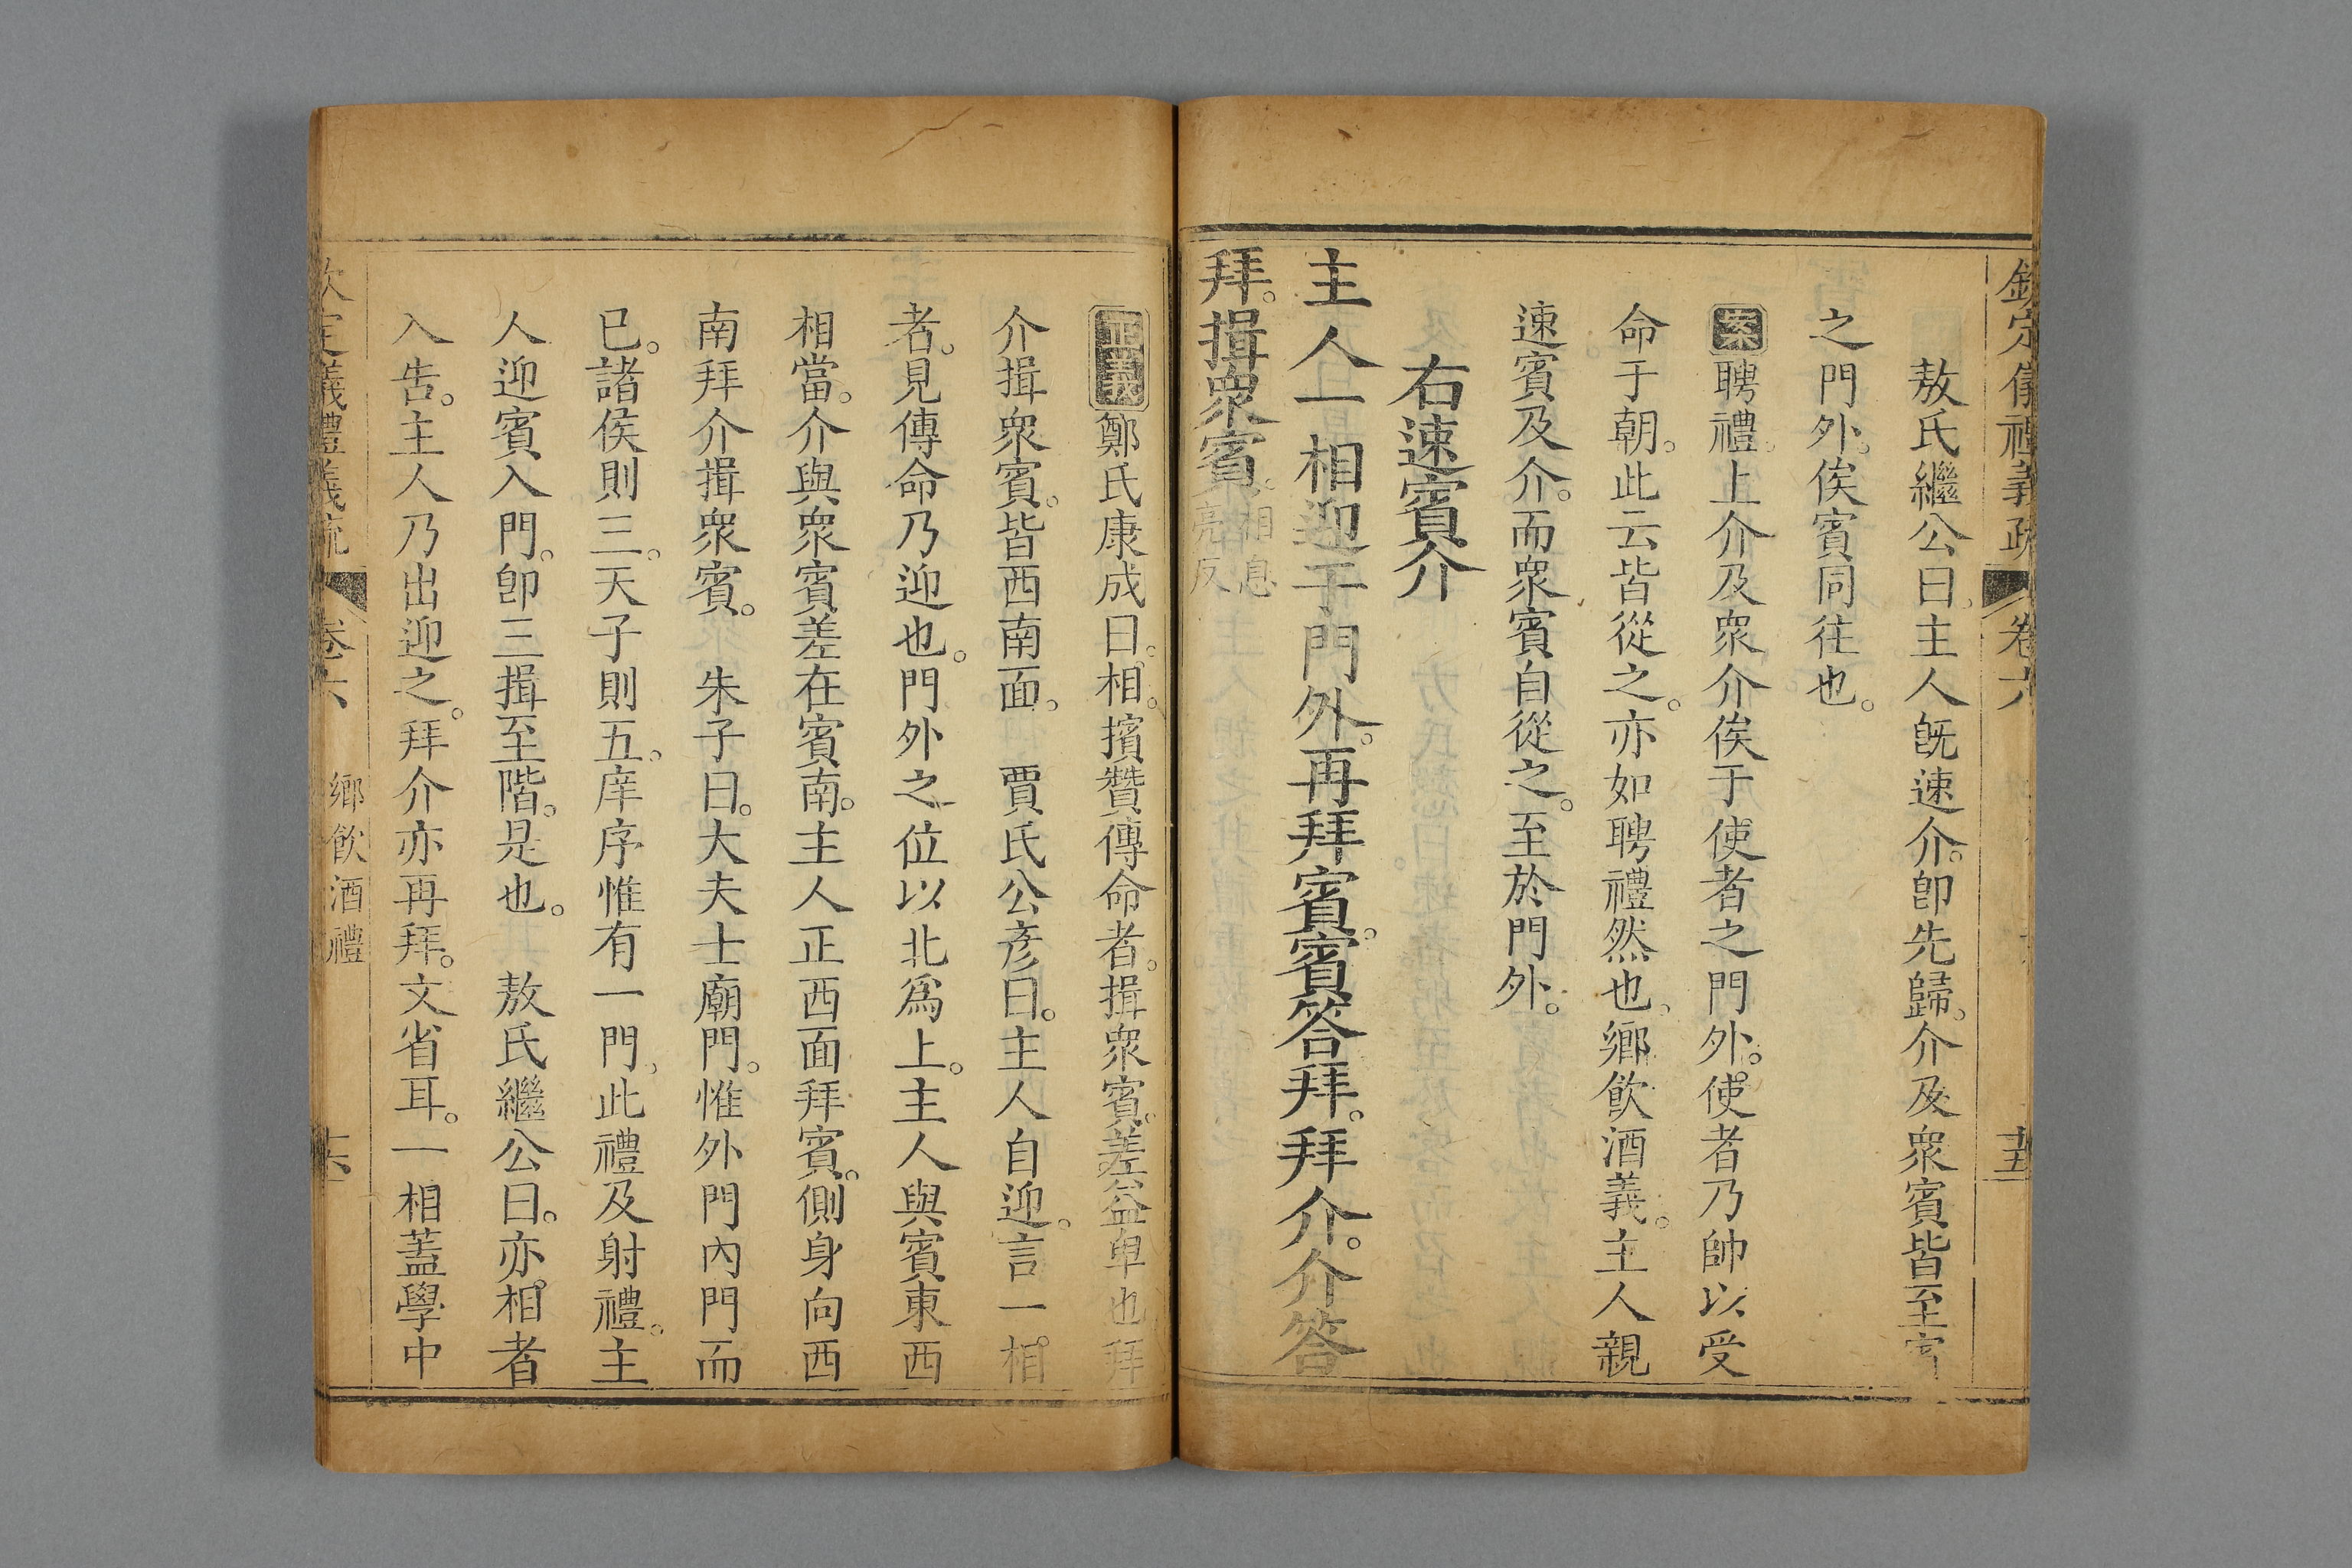 欽定儀禮義疏 卷六 十五
敖氏繼公曰主人旣速介卽先歸介及衆賓皆至賓
之門外俟賓同往也
案聘禮上介及衆介俟于使者之門外使者乃帥以受
命于朝此云皆從之亦如聘禮然也鄉飮酒義主人親
速賓及介而衆賓自從之至於門外
右速賓介
主人一相迎于門外再拜賓賓答拜拜介介答
拜揖衆賓相息亮反
正義鄭氏康成曰相擯贊傳命者揖衆賓差益卑也拜
介揖衆賓皆西南面 賈氏公彥曰主人自迎言一相
者見傳命乃迎也門外之位以北爲上主人與賓東西
相當介與衆賓差在賓南主人正西面拜賓側身向西
南拜介揖衆賓 朱子曰大夫士廟門惟外門內門而
已諸侯則三天子則五庠序惟有一門此禮及射禮主
人迎賓入門卽三揖至階是也 敖氏繼公曰亦相者
入告主人乃出迎之拜介亦再拜文省耳一相蓋學中
欽定儀禮義疏 卷六 鄉飮酒禮 十六